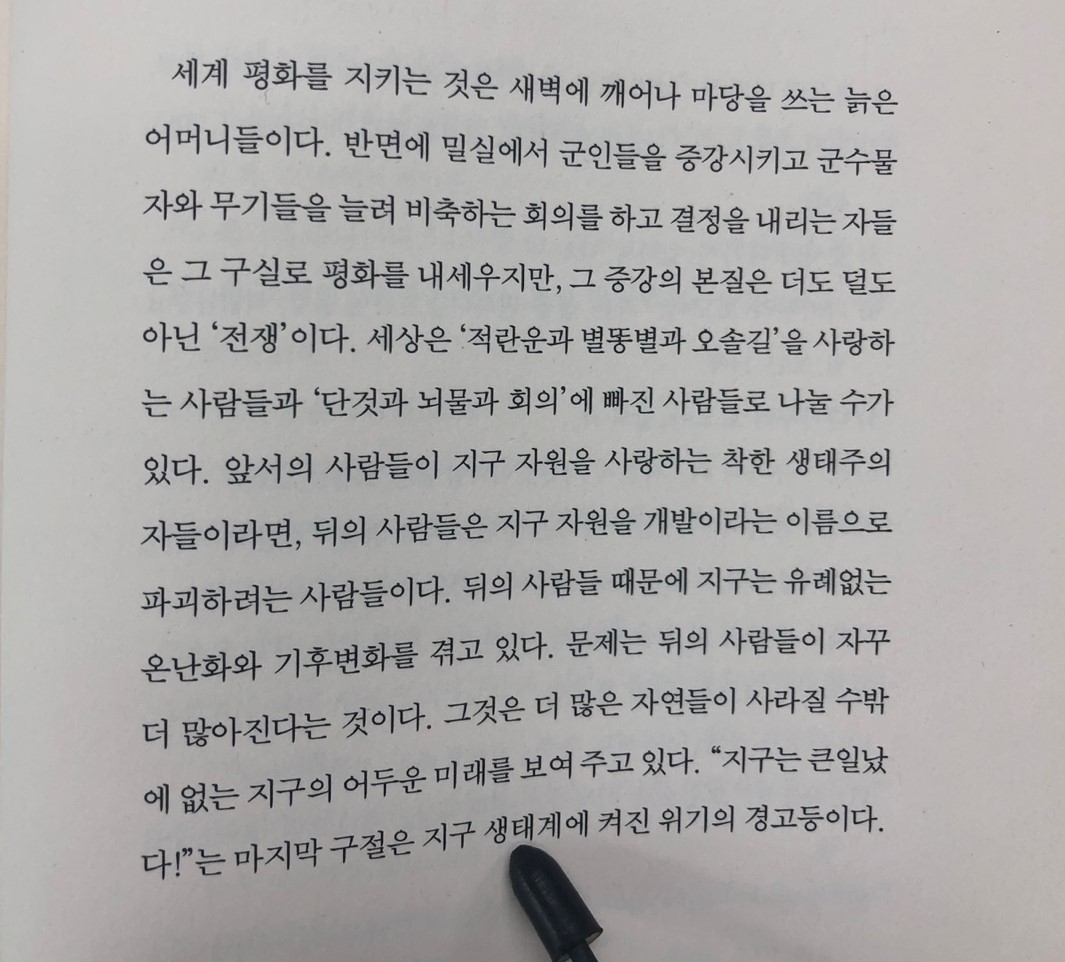 세계 평화를 지키는 것은 새벽에 깨어나 마당을 쓰는 늙은
어머니들이다. 반면에 밀실에서 군인들을 증강시키고 군수물
자와 무기들을 늘려 비축하는 회의를 하고 결정을 내리는 자들
은 그 구실로 평화를 내세우지만, 그 증강의 본질은 더도 덜도
아닌 ‘전쟁’이다. 세상은 ‘적란운과 별똥별과 오솔길’을 사랑하
는 사람들과 ‘단것과 뇌물과 회의’에 빠진 사람들로 나눌 수가
있다. 앞서의 사람들이 지구 자원을 사랑하는 착한 생태주의
자들이라면, 뒤의 사람들은 지구 자원을 개발이라는 이름으로
파괴하려는 사람들이다. 뒤의 사람들 때문에 지구는 유례없는
온난화와 기후변화를 겪고 있다. 문제는 뒤의 사람들이 자꾸
더 많아진다는 것이다. 그것은 더 많은 자연들이 사라질 수밖
에 없는 지구의 어두운 미래를 보여 주고 있다. “지구는 큰일났
다!”는 마지막 구절은 지구 생태계에 켜진 위기의 경고등이다.